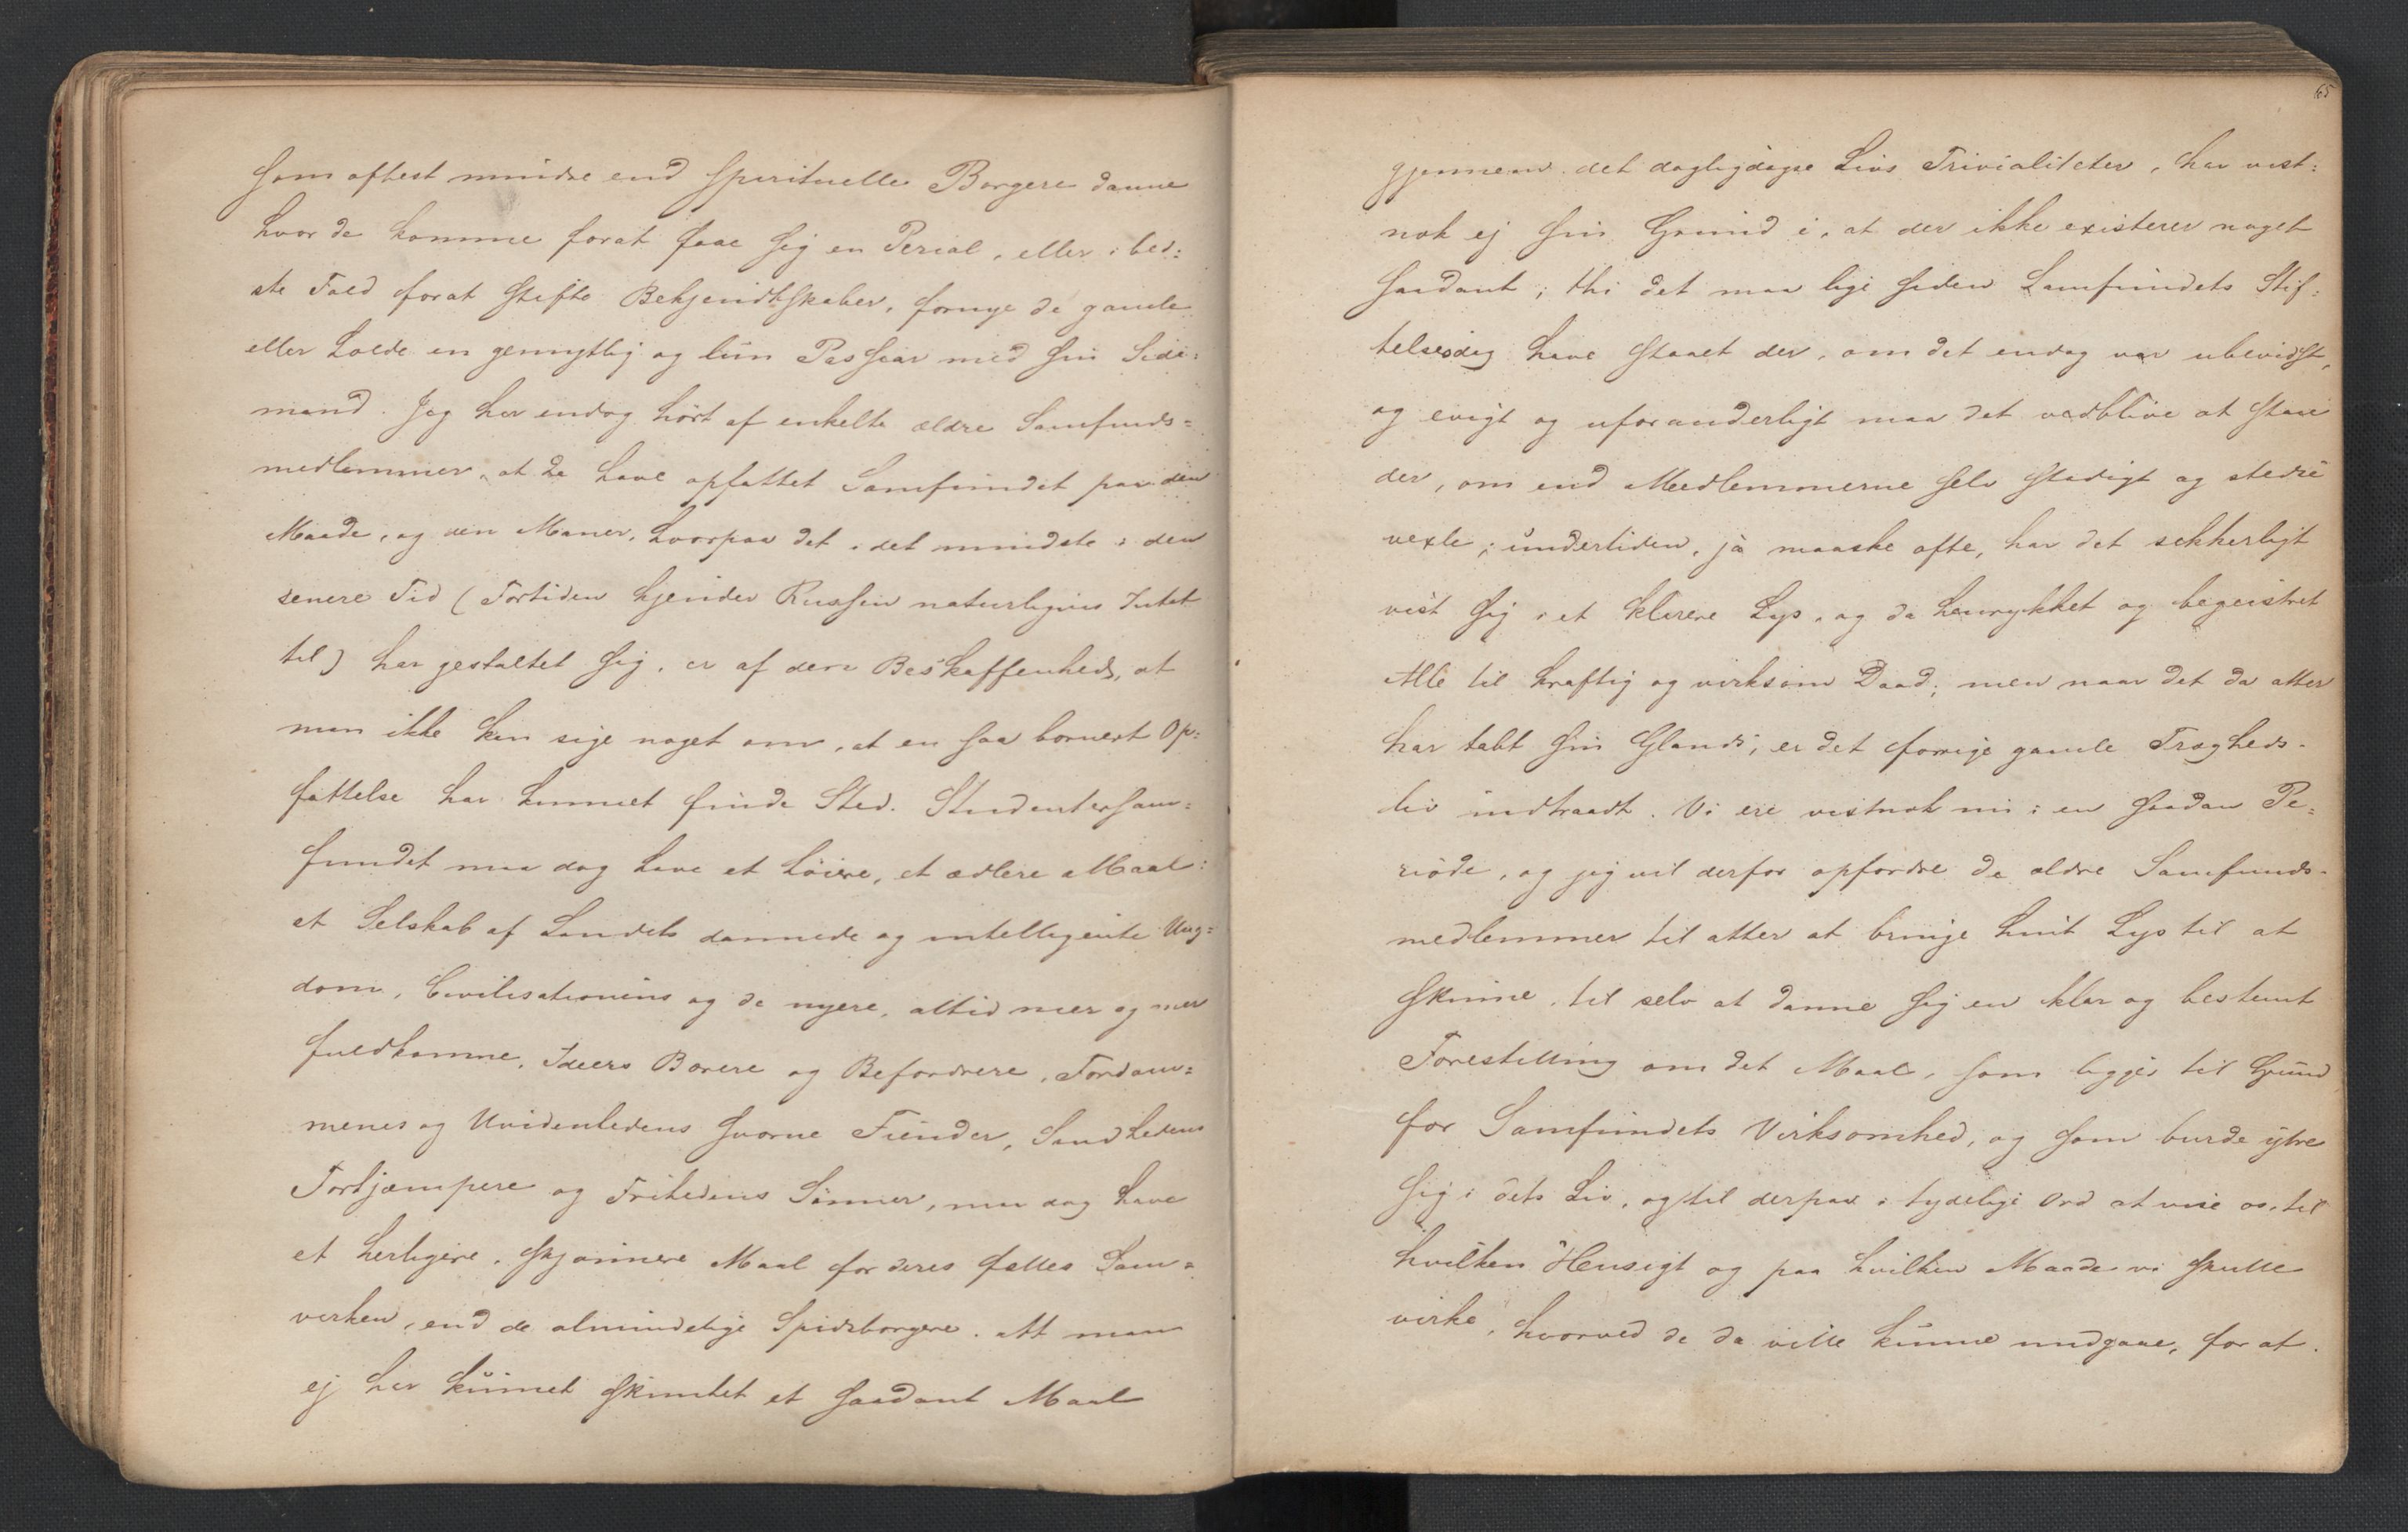 som oftest mindre end spirituelle Borgere danne
hvor de komme forat faae sig en Perial, eller i bed=
ste Fald forat stifte Bekjendtskaber, fornye de gamle
eller holde en gemytlig og luun Passiar med sin Side=
mand. Jeg har endog hört af enkelte ældre Samfunds=
medlemmer, at de have opfattet Samfundet paa den
Maade, og den Maner, hvorpaa det i det mindste i den
senere Tid (Fortiden kjender Russen naturligvis Intet
til) har gestaltet sig, er af den Beskaffenhed, at
man ikke kan sige noget om, at en saa borneert Op=
fattelse har kunnet finde Sted. Studentersam=
fundet maa dog have et höiere, et ædlere Maal:
et Selskab af Landets dannede og intelligente Ung=
dom, Civilisationens og de nyere, altid mer og mer
fuldkomne, Ideers Bærere og Befordrere, Fordom=
menes og Uvidenhedens svorne Fiender, Sandhedens
Forkjæmpere og Frihedens Sönner, maa dog have
et herligere, skjönnere Maal for deres fælles Sam=
virken, end de almindelige Spidsborgere. At man
ej har kunnet skimtet et saadant Maal
65
gjennem det dagligdagse Livs Trivialiteter, har vist=
nok ej sin Grund i, at der ikke existerer noget
saadant; thi det maa lige siden Samfundets Stif=
telsesdag have staaet der, om det endog var ubevidst,
og evigt og uforanderligt maa det vedblive at staae
der, om end Medlemmerne selv stadigt og stedse
vexle; undertiden, ja maaske ofte, har det sikkerligt
vist sig i et klarere Lys, og da henrykket og begeistret
Alle til kraftig og virksom Daad; men naar det da atter
har tabt sin Glands, er det forrige gamle Trægheds=
liv indtraadt. Vi ere vistnok nu i en saadan Pe=
riode, og jeg vil derfor opfordre de ældre Samfunds=
medlemmer til atter at bringe hint Lys til at
skinne, til selv at danne sig en klar og bestemt
Forestilling om det Maal, som ligger til Grund
for Samfundets Virksomhed, og som burde ytre
sig i dets Liv, og til derpaa i tydelige Ord at vise os, til
hvilken Hensigt og paa hvilken Maade vi skulle
virke, hvorved de da ville kunne undgaae, for at